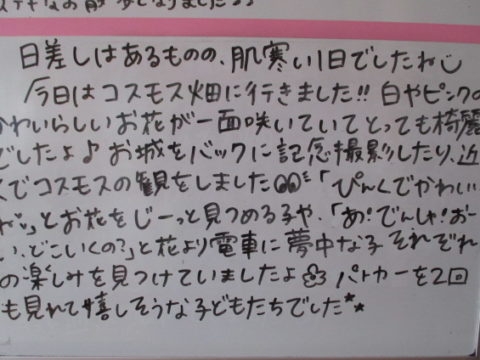 ステキなお散歩になりました♪
日差しはあるものの、肌寒い1日でしたね
今日はコスモス畑に行きました!! 白やピンクの
かわいらしいお花が一面咲いていてとっても綺麗
でしたよ♪ お城をバックに記念撮影したり、近
くでコスモスの観をしました 「ぴんくでかわいい
とお花をじーっと見つめる子や、「あ!でんしゃ!おー
い、どこいくの?」と花より電車に夢中な子 それぞれ
の楽しみを見つけていましたよ パトカーを2回
も見れて嬉しそうな子どもたちでした